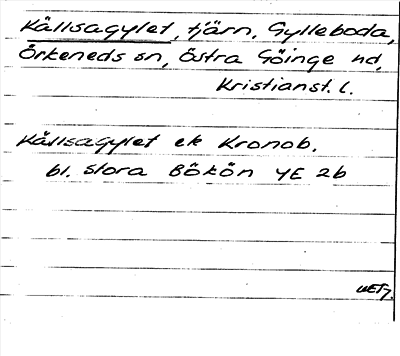 Källsagylet, tjärn, Gylleboda,
Örkeneds sn, Östra Göinge hd,
Kristianst. l.
Källsagylet ek Kronob.
bl. Stora Bökön 4E 2b